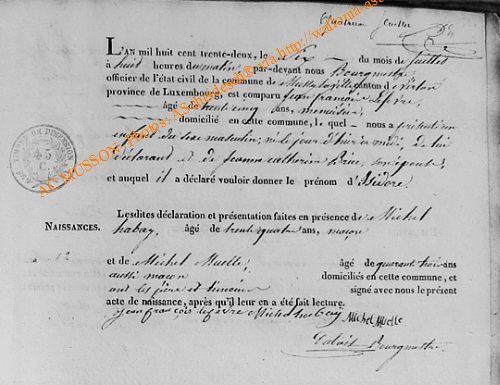 L'AN mil huit cent trente-deux, le Six du mois de Juillet
à huit heures du matin, par-devant nous Bourgmestre
officier de l'état civil de la commune de Musson canton de Virton
province de Luxembourg, est comparu Jean françois Lefèvre,
âgé de trente cinq ans, menuisier,
domicilié en cette commune, le quel nous a présenté un
enfant du sexe masculin, né le jour d'hier à midi, de lui
déclarant et de Jeanne Catherine son épouse,
et auquel il a déclaré vouloir donner le prénom d'Isidore.
NAISSANCES.
Lesdites déclaration et présentation faites en présence de Michel
habay, âgé de trente quatre ans, maçon
et de Michel Muelle, âgé de quarante trois ans
aussi maçon domiciliés en cette commune, et
ont les père et témoins signé avec nous le présent
acte de naissance, après qu'il leur en a été fait lecture.
Jean françois lefevre Michel habay Michel Muelle
Bourgmestre